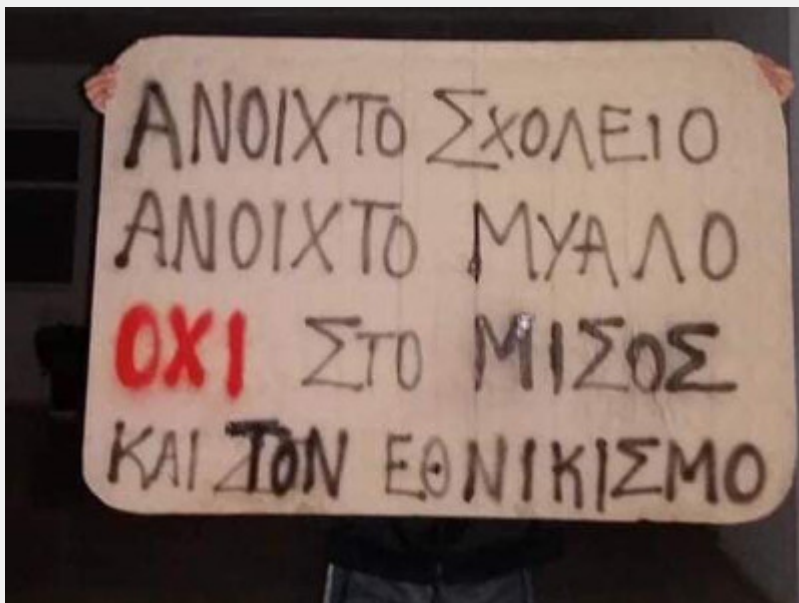 ΑΝΟΙΧΤΟ ΣΧΟΛΕΙΟ
ΑΝΟΙΧΤΟ ΜΥΑΛΟ
ΟΧΙ ΣΤΟ ΜΙΣΟΣ
ΚΑΙ ΣΤΟΝ ΕΘΝΙΚΙΣΜΟ